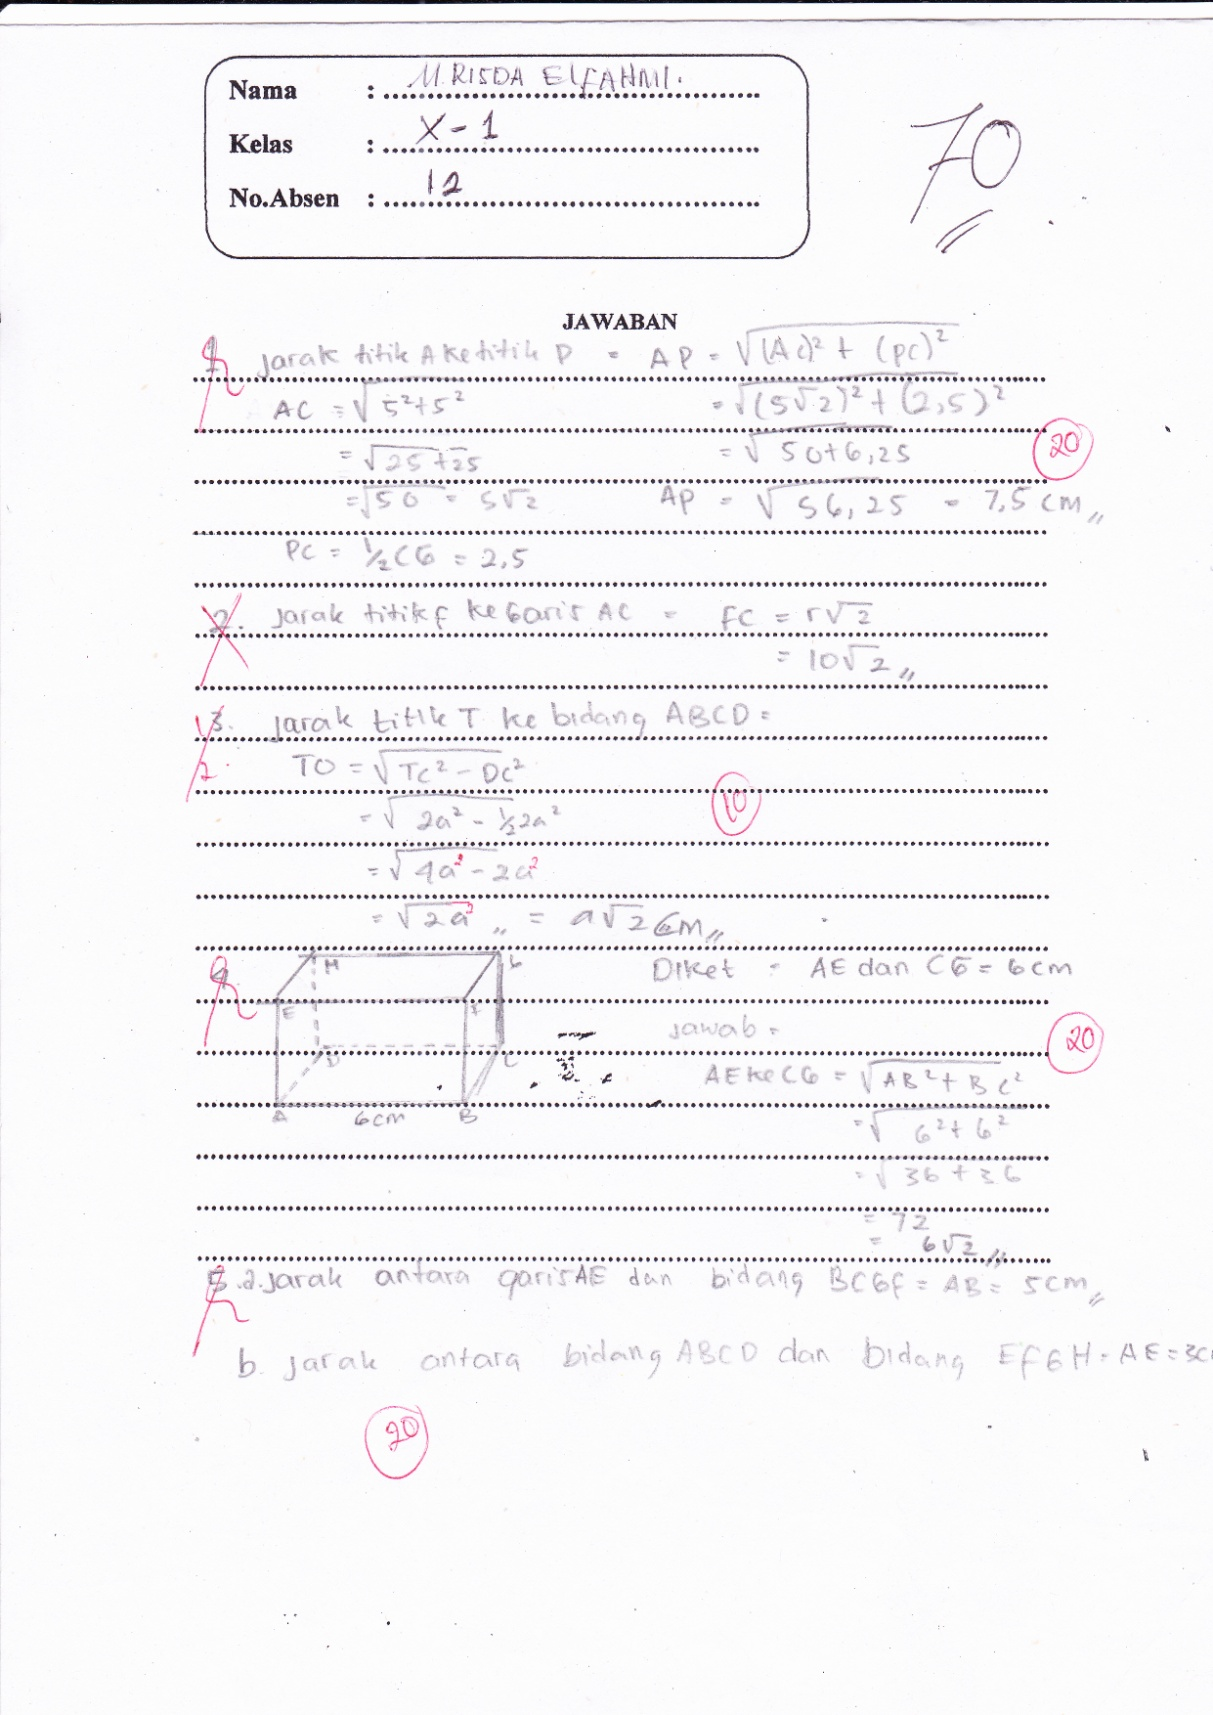 Nama : M.RISDA ELFAHMI.
Kelas : X-1
No.Absen : 12
70
JAWABAN
1. Jarak titik A ke titik P = AP = √(AC)² + (PC)²
AC = √5²+5² = √(5√2)² + (2,5)²
= √25+25 = √50+6,25
20
= √50 = 5√2 AP = √56,25 = 7,5 cm
PC = ½CG = 2,5
2. Jarak titik F ke Garis AC = FC = r√2
= 10√2
3. Jarak titik T ke bidang ABCD =
TO = √TC² - OC²
= √2a² - ½2a²
10
= √4a² - 2a²
= √2a² = a√2 cm
4. H G Diket = AE dan CG = 6cm
E F
Jawab =
D C 20
AE ke CG = √AB²+BC²
A 6cm B
= √6²+6²
= √36+36
= 72
= 6√2
5.a. Jarak antara garis AE dan bidang BCGF = AB = 5cm
b. Jarak antara bidang ABCD dan bidang EFGH = AE = 3c
20